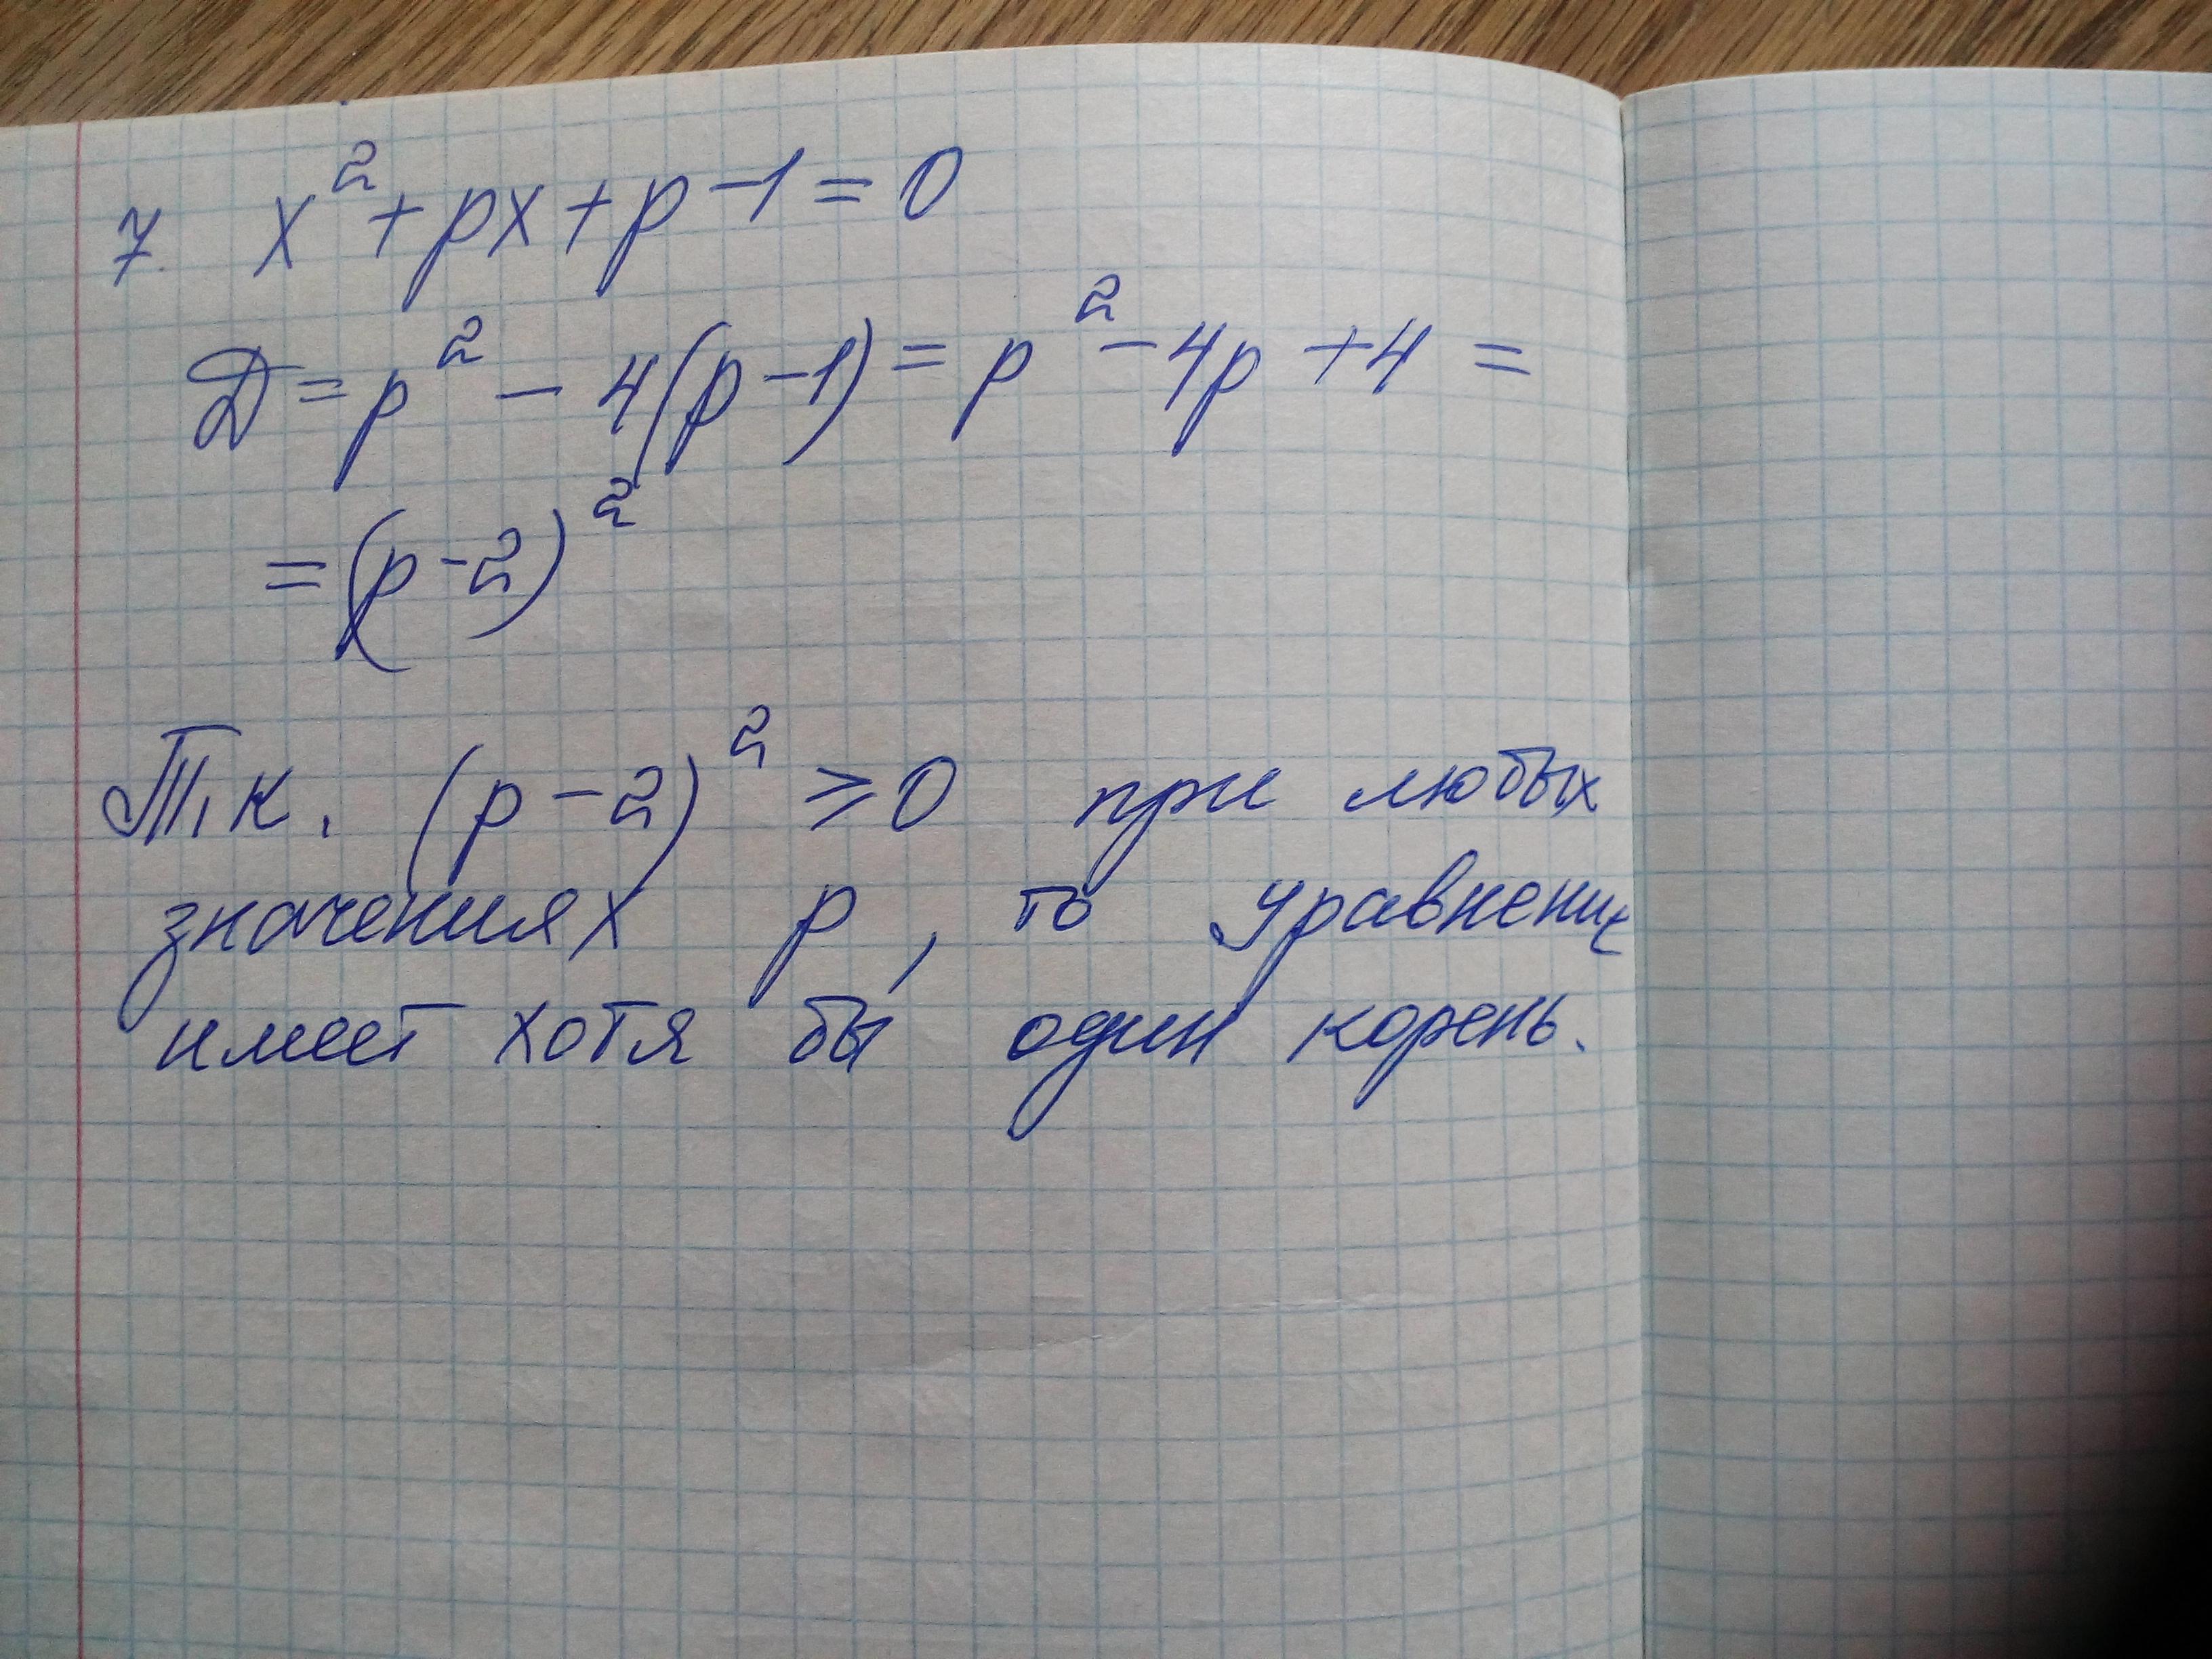 7. x² + px + p - 1 = 0
Д = p² - 4(p - 1) = p² - 4p + 4 =
= (p - 2)²
Т.к. (p - 2)² ⩾ 0 при любых
значениях p, то уравнение
имеет хотя бы один корень.